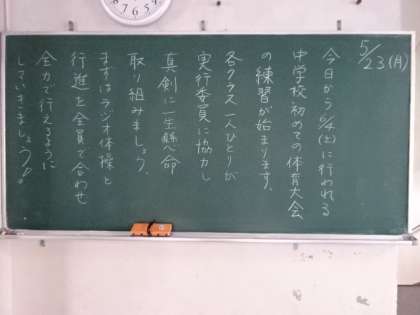 5/23(月)
今日から6/4(土)に行われる
中学校初めての体育大会
の練習が始まります。
各クラス一人ひとりが
実行委員に協力し
真剣に一生懸命
取り組みましょう。
まずはラジオ体操と
行進を全員で合わせ
全力で行えるように
していきましょう!!